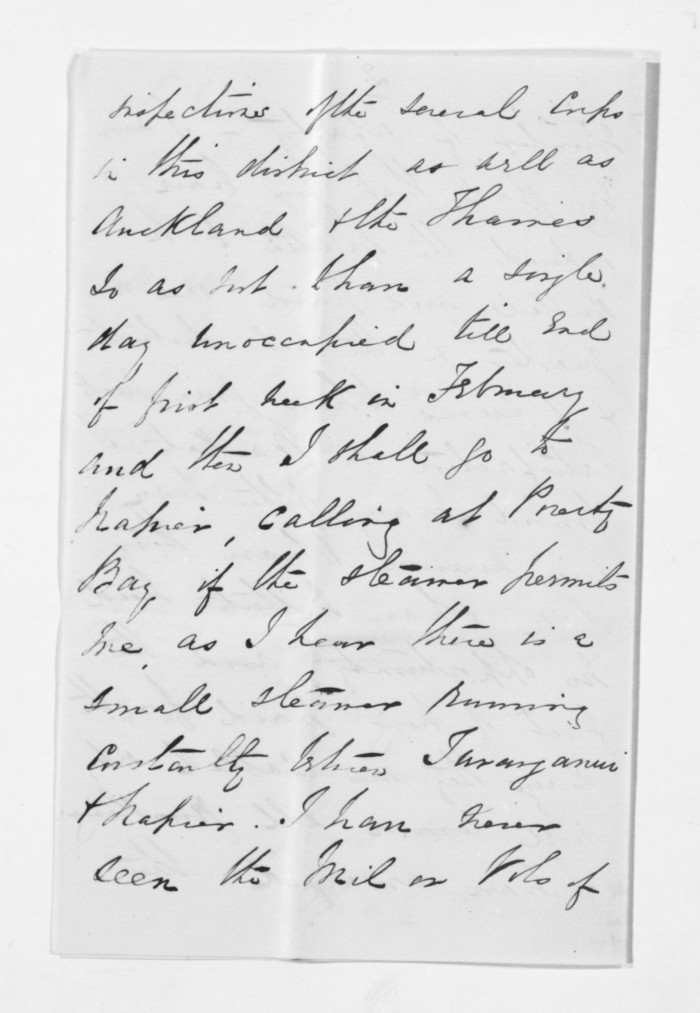 inspections of the several Corps
in this district as well as
Auckland & the Thames
So as not to have a single
day unoccupied till End
of first week in February
and then I shall go to
Napier, calling at Poverty
Bay, if the steamer permits
me, as I hear there is a
small steamer running
Constantly between Turanganui
& Napier. I have never
seen the Mil or Vols of